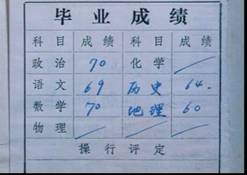 毕业成绩
科目 成绩 科目 成绩
政治 70 化学 /
语文 69 历史 64.
数学 70 地理 60
物理 / / /
操行评定